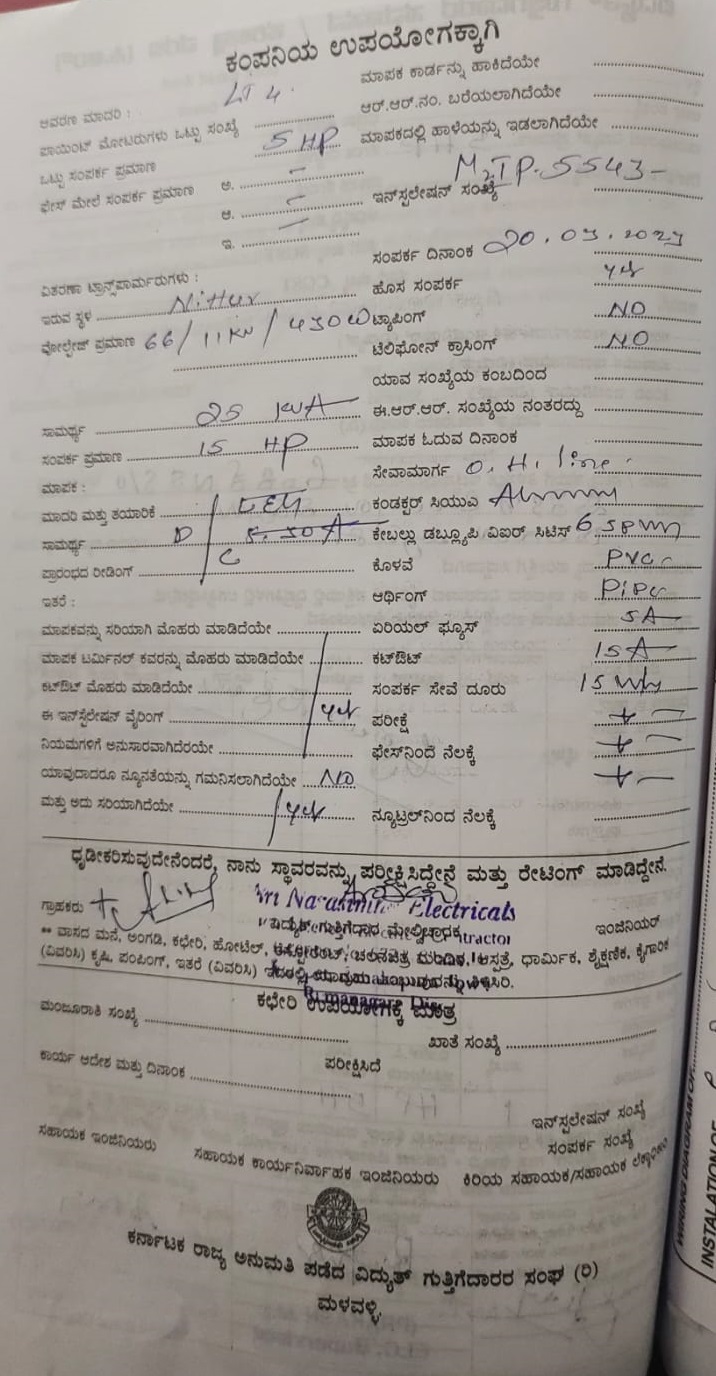 ಕಂಪನಿಯ ಉಪಯೋಗಕ್ಕಾಗಿ
ಆವರಣ ಮಾದರಿ : LT 4. ಮಾಪಕ ಕಾರ್ಡನ್ನು ಹಾಕಿದೆಯೇ
ಪಾಯಿಂಟ್ ಮೋಟರುಗಳು ಒಟ್ಟು ಸಂಖ್ಯೆ ಆರ್.ಆರ್.ನಂ. ಬರೆಯಲಾಗಿದೆಯೇ
ಒಟ್ಟು ಸಂಪರ್ಕ ಪ್ರಮಾಣ 5 HP ಮಾಪಕದಲ್ಲಿ ಹಾಳೆಯನ್ನು ಇಡಲಾಗಿದೆಯೇ
ಫೇಸ್ ಮೇಲೆ ಸಂಪರ್ಕ ಪ್ರಮಾಣ ಅ. – ಇನ್‌ಸ್ಟಲೇಷನ್ ಸಂಖ್ಯೆ 5543
ಆ. –
ಇ. – ಸಂಪರ್ಕ ದಿನಾಂಕ
ವಿತರಣಾ ಟ್ರಾನ್ಸ್‌ಪಾರ್ಮರುಗಳು : ಹೊಸ ಸಂಪರ್ಕ yes
ಇರುವ ಸ್ಥಳ Nittur ಟ್ಯಾಪಿಂಗ್ NO
ವೋಲ್ಟೇಜ್ ಪ್ರಮಾಣ 66/11KV/ ಟೆಲಿಫೋನ್ ಕ್ರಾಸಿಂಗ್ NO
ಯಾವ ಸಂಖ್ಯೆಯ ಕಂಬದಿಂದ
ಸಾಮರ್ಥ್ಯ 25 KVA ಈ.ಆರ್.ಆರ್. ಸಂಖ್ಯೆಯ ನಂತರದ್ದು
ಸಂಪರ್ಕ ಪ್ರಮಾಣ 15 HP ಮಾಪಕ ಓದುವ ದಿನಾಂಕ
ಮಾಪಕ : ಸೇವಾಮಾರ್ಗ O. H. line
ಮಾದರಿ ಮತ್ತು ತಯಾರಿಕೆ ಕಂಡಕ್ಟರ್ ಸಿಯುವಿ
ಸಾಮರ್ಥ್ಯ D ಕೇಬಲ್ಲು ಡಬ್ಲ್ಯೂಪಿ ವಿಐರ್ ಸಿಟಿಸ್
ಪ್ರಾರಂಭದ ರೀಡಿಂಗ್ C ಕೊಳವೆ PVC
ಇತರೆ : ಆರ್ಥಿಂಗ್ Pipe
ಮಾಪಕವನ್ನು ಸರಿಯಾಗಿ ಮೊಹರು ಮಾಡಿದೆಯೇ ಏರಿಯಲ್ ಫ್ಯೂಸ್ 5A
ಮಾಪಕ ಟರ್ಮಿನಲ್ ಕವರನ್ನು ಮೊಹರು ಮಾಡಿದೆಯೇ ಕಟ್‌ಔಟ್ 15A
ಕಟ್‌ಔಟ್ ಮೊಹರು ಮಾಡಿದೆಯೇ ಸಂಪರ್ಕ ಸೇವೆ ದೂರು 15
ಈ ಇನ್‌ಸ್ಟೆಲೇಷನ್ ವೈರಿಂಗ್ yes ಪರೀಕ್ಷೆ + –
ನಿಯಮಗಳಿಗೆ ಅನುಸಾರವಾಗಿದೆರಯೇ ಫೇಸ್‌ನಿಂದೆ ನೆಲಕ್ಕೆ + –
ಯಾವುದಾದರೂ ನ್ಯೂನತೆಯನ್ನು ಗಮನಿಸಲಾಗಿದೆಯೇ NO + –
ಮತ್ತು ಅದು ಸರಿಯಾಗಿದೆಯೇ yes ನ್ಯೂಟ್ರಲ್‌ನಿಂದ ನೆಲಕ್ಕೆ
ಧೃಡೀಕರಿಸುವುದೇನೆಂದರೆ, ನಾನು ಸ್ಥಾವರವನ್ನು ಪರೀಕ್ಷಿಸಿದ್ದೇನೆ ಮತ್ತು ರೇಟಿಂಗ್ ಮಾಡಿದ್ದೇನೆ.
Electricals
ಗ್ರಾಹಕರು ವಿದ್ಯುತ್ ಗುತ್ತಿಗೆದಾರ ಮೇಲ್ವಿಚಾರಕ ಇಂಜಿನಿಯರ್
** ವಾಸದ ಮನೆ, ಅಂಗಡಿ, ಕಛೇರಿ, ಹೋಟೆಲ್, ಚಲನಚಿತ್ರ ಮಂದಿರ, ಆಸ್ಪತ್ರೆ, ಧಾರ್ಮಿಕ, ಶೈಕ್ಷಣಿಕ, ಕೈಗಾರಿಕ
(ವಿವರಿಸಿ) ಕೃಷಿ, ಪಂಪಿಂಗ್, ಇತರೆ (ವಿವರಿಸಿ)
ಕಛೇರಿ ಉಪಯೋಗಕ್ಕೆ ಮಾತ್ರ
ಮಂಜೂರಾತಿ ಸಂಖ್ಯೆ ಖಾತೆ ಸಂಖ್ಯೆ
ಕಾರ್ಯ ಆದೇಶ ಮತ್ತು ದಿನಾಂಕ ಪರೀಕ್ಷಿಸಿದೆ
ಇನ್‌ಸ್ಟಲೇಷನ್ ಸಂಖ್ಯೆ
ಸಂಪರ್ಕ ಸಂಖ್ಯೆ
ಸಹಾಯಕ ಇಂಜಿನಿಯರು ಸಹಾಯಕ ಕಾರ್ಯನಿರ್ವಾಹಕ ಇಂಜಿನಿಯರು ಕಿರಿಯ ಸಹಾಯಕ/ಸಹಾಯಕ
ಕರ್ನಾಟಕ ರಾಜ್ಯ ಅನುಮತಿ ಪಡೆದ ವಿದ್ಯುತ್ ಗುತ್ತಿಗೆದಾರರ ಸಂಘ (ರಿ)
ಮಳವಳ್ಳಿ
WIRING DIAGRAM OF
INSTALATION OF